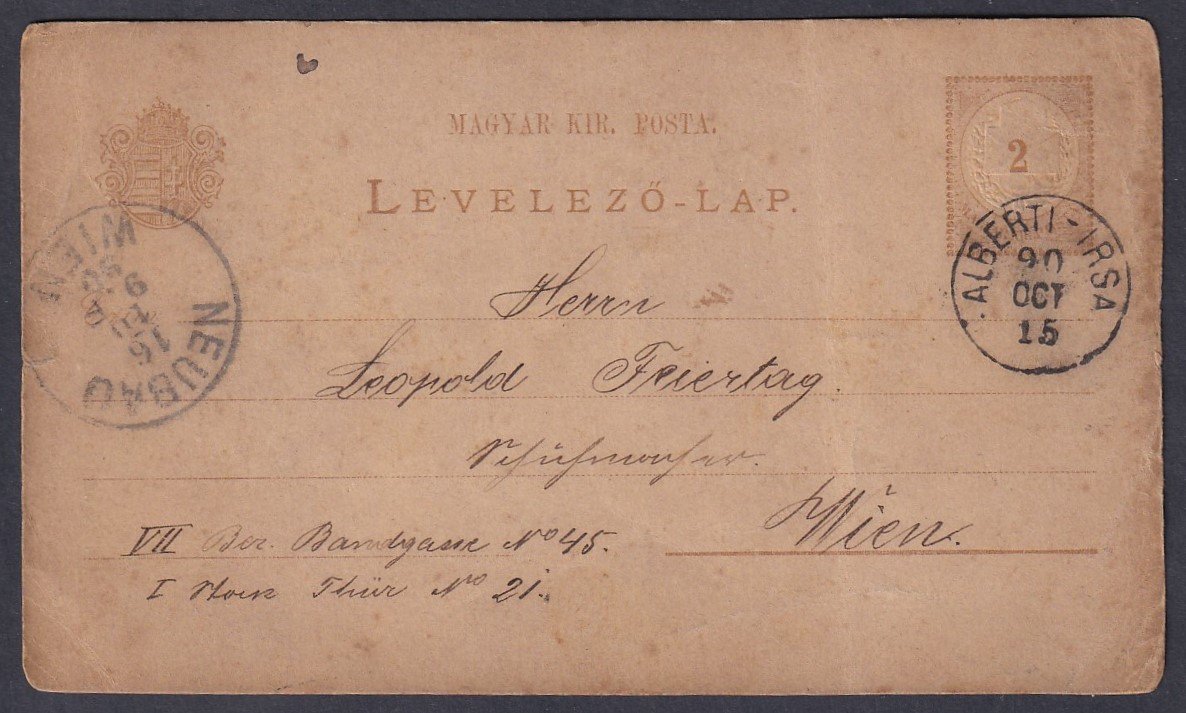 MAGYAR KIR. POSTA.
LEVELEZŐ-LAP.
2
ALBERTI-IRSA
90
OCT
15
NEUBAU
WIEN
Herrn
Leopold Feiertag.
Schuhmacher.
Wien.
VII Bez. Bandgasse No 45.
I Stock Thür No 21.